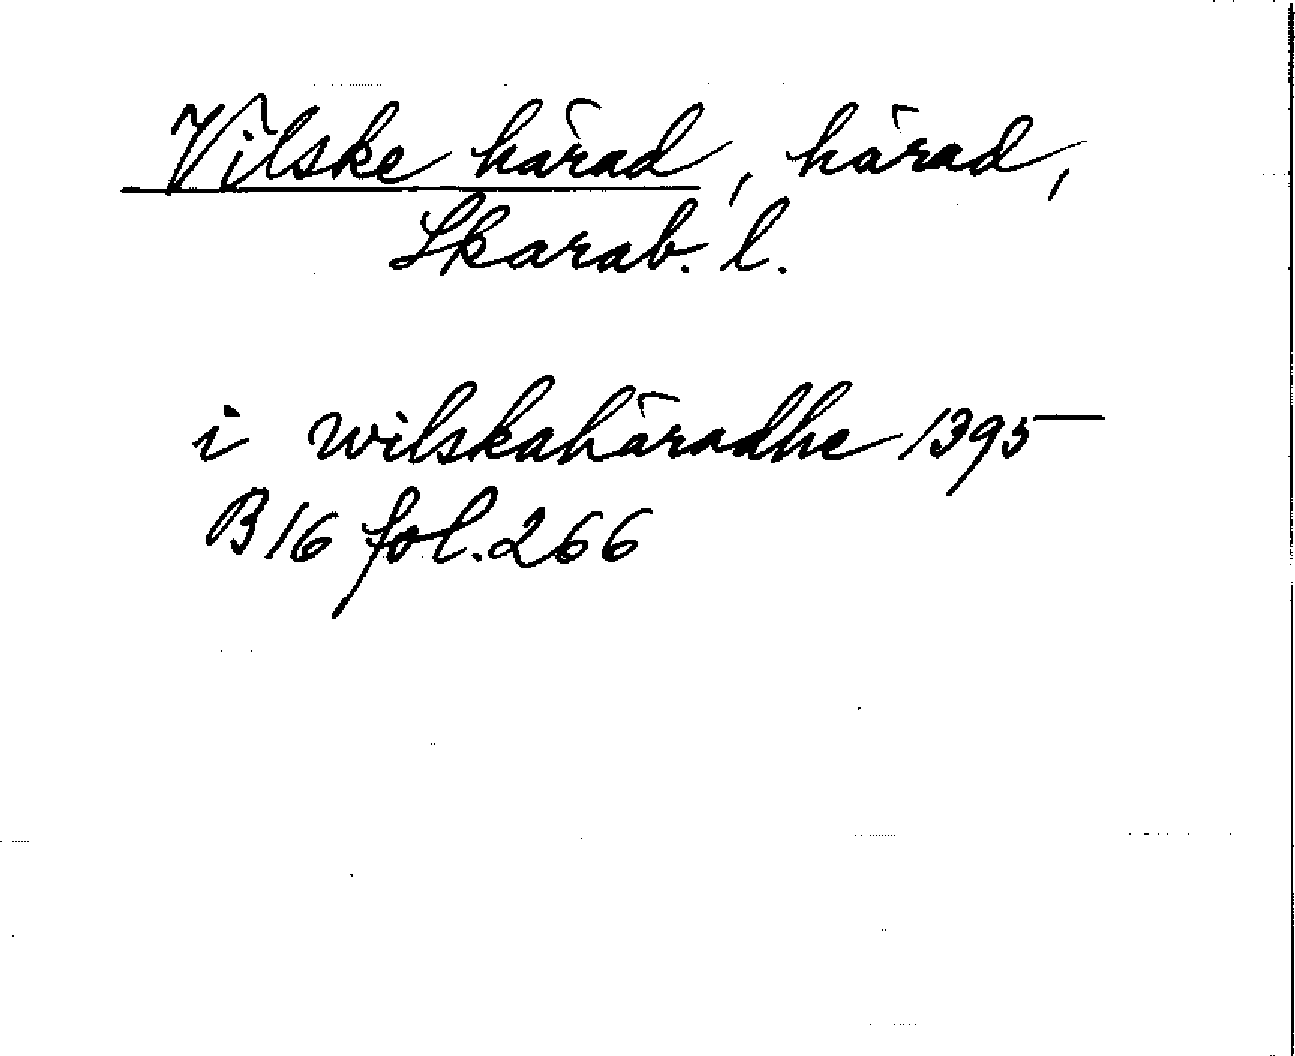 Vilske härad, härad,
Skarab. l.
i wilskahäradhe 1395
B 16 fol. 266